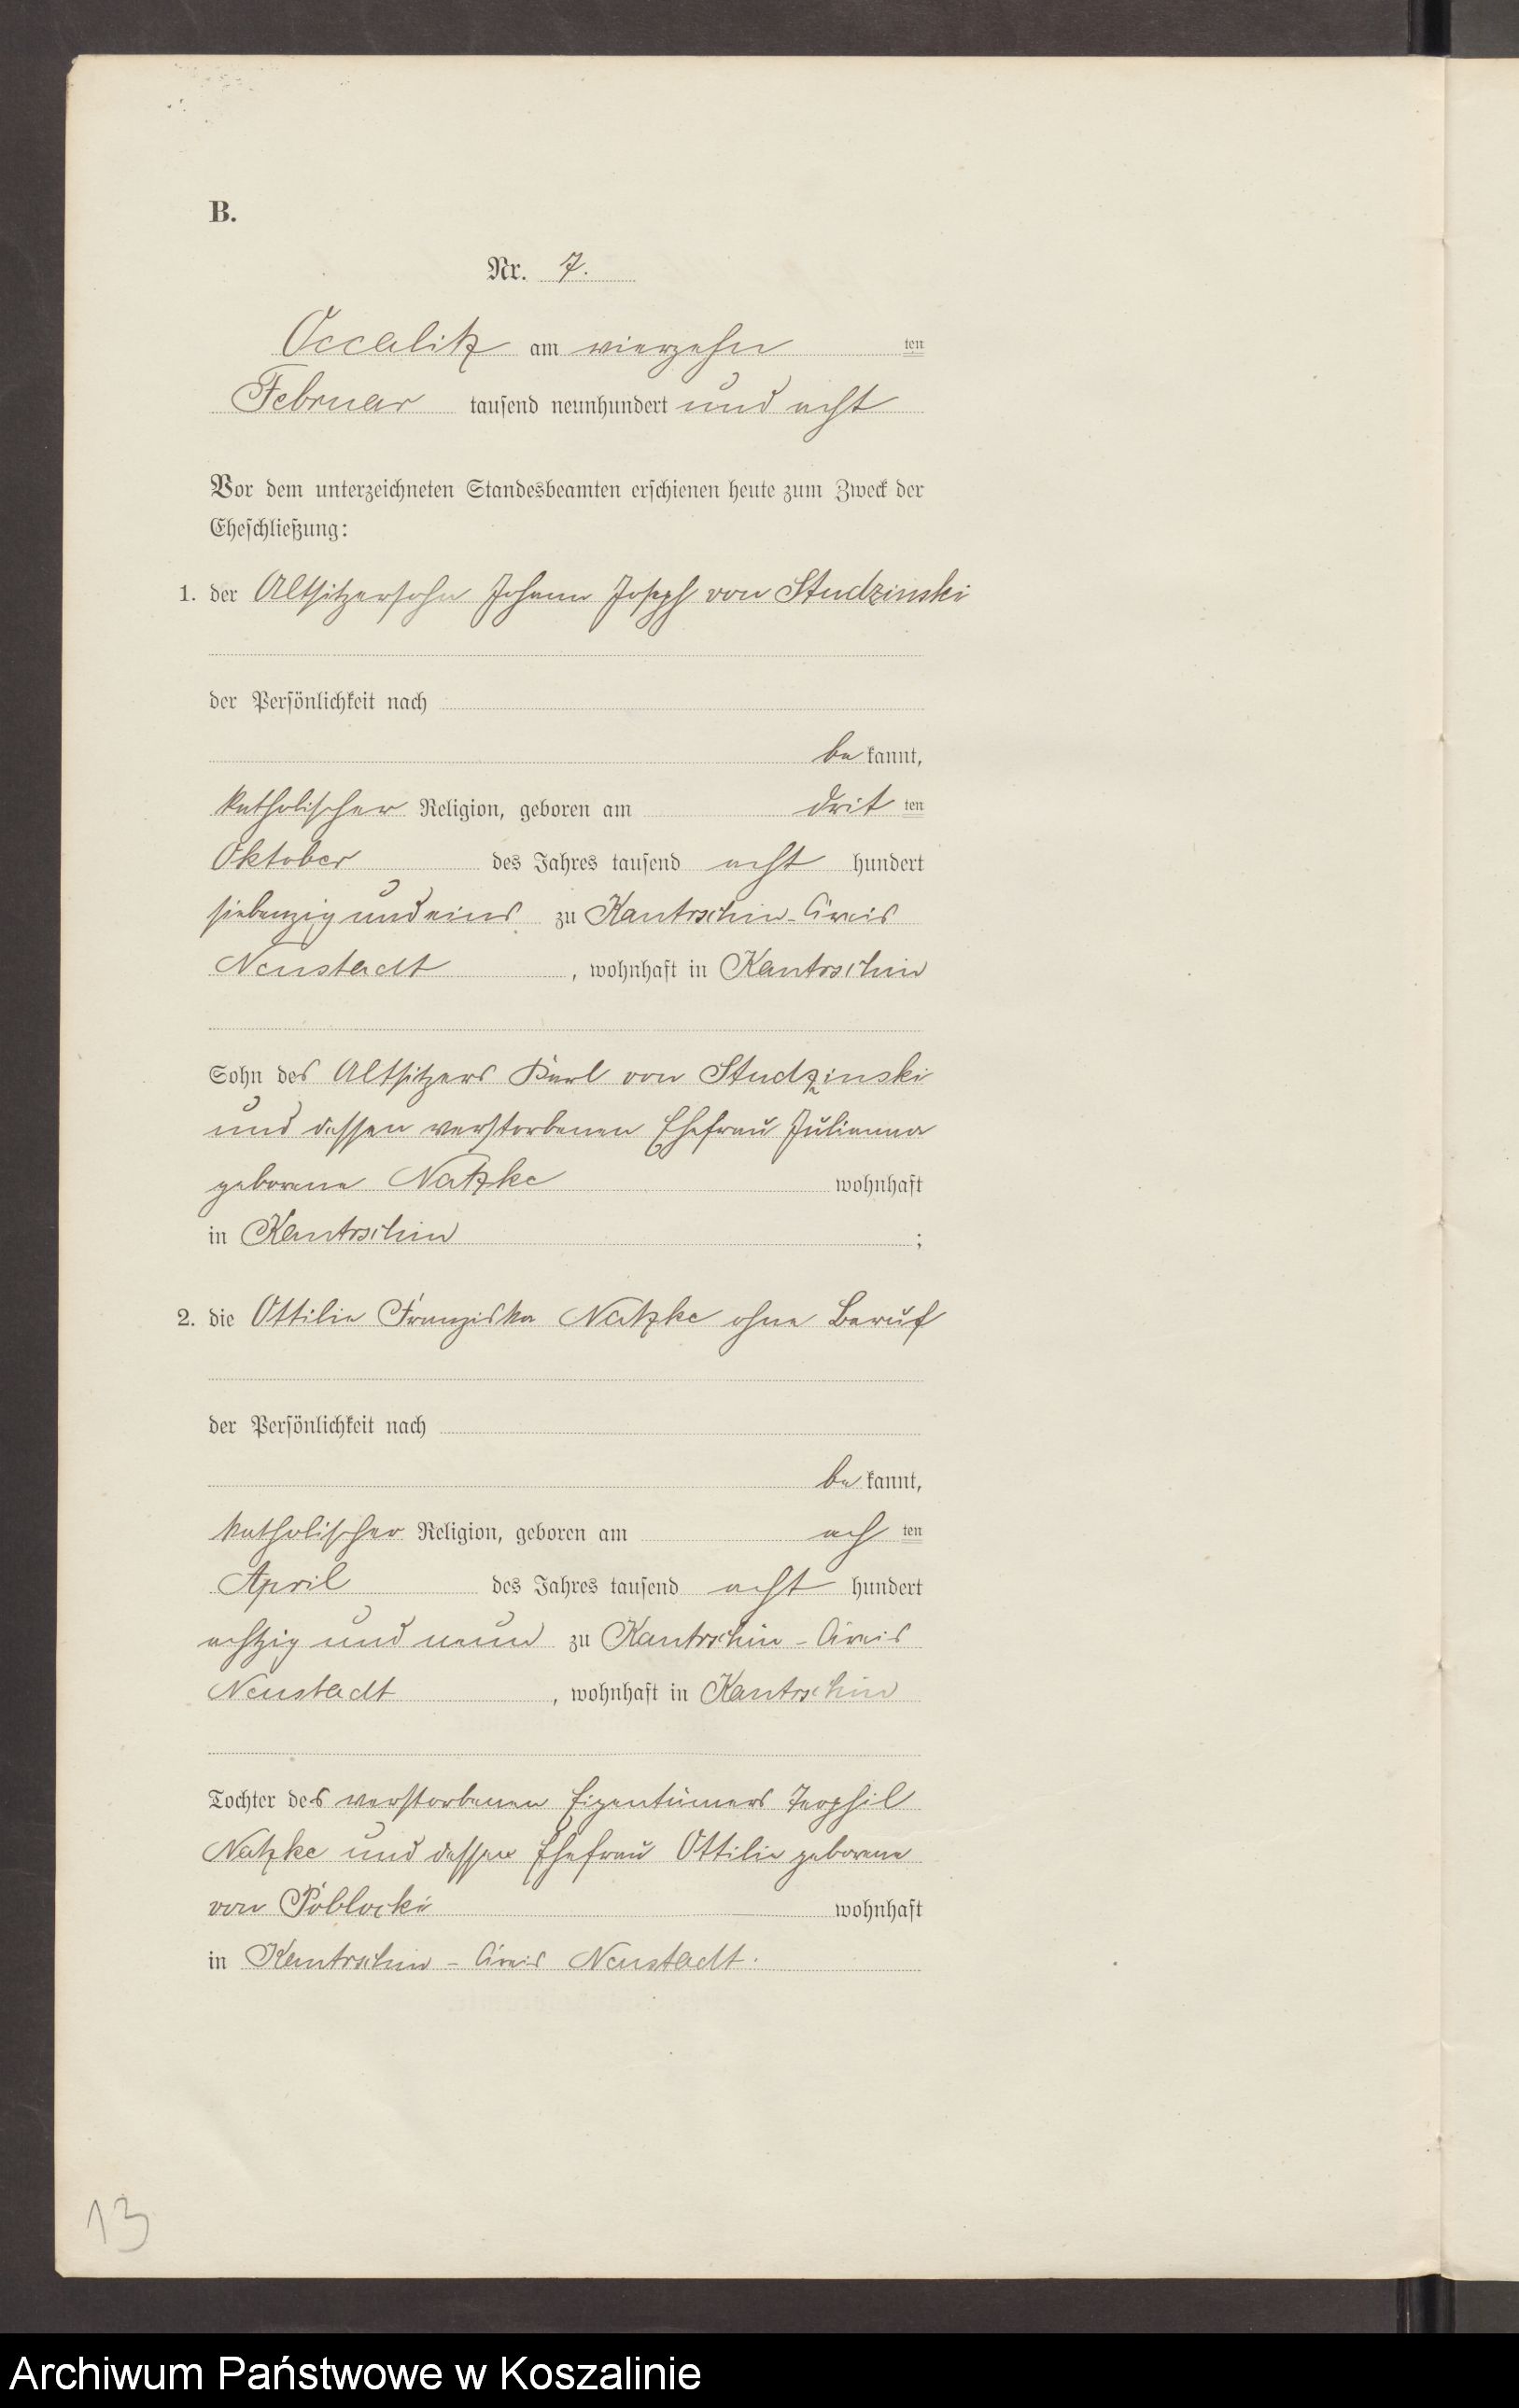 B.
Nr. 7.
Occalitz am vierzehn ten
Februar tausend neunhundert und acht
Vor dem unterzeichneten Standesbeamten erschienen heute zum Zweck der
Eheschließung:
1. der Altsitzersohn Johann Joseph von Studzinski
der Persönlichkeit nach
be kannt,
katholischer Religion, geboren am drit ten
Oktober des Jahres tausend acht hundert
siebenzig und eins zu Kantrschin-Kreis
Neustadt, wohnhaft in Kantrschin
Sohn des Altsitzers Karl von Studzinski
und dessen verstorbenen Ehefrau Julianna
geborene Natzke wohnhaft
in Kantrschin ;
2. die Ottilie Franziska Natzke ohne Beruf
der Persönlichkeit nach
be kannt,
katholischer Religion, geboren am ach ten
April des Jahres tausend acht hundert
achtzig und neun zu Kantrschin - Kreis
Neustadt, wohnhaft in Kantrschin
Tochter des verstorbenen Eigentümers Teophil
Natzke und dessen Ehefrau Ottilie geborene
von Pöblocki wohnhaft
in Kantrschin - Kreis Neustadt.
13
Archiwum Państwowe w Koszalinie